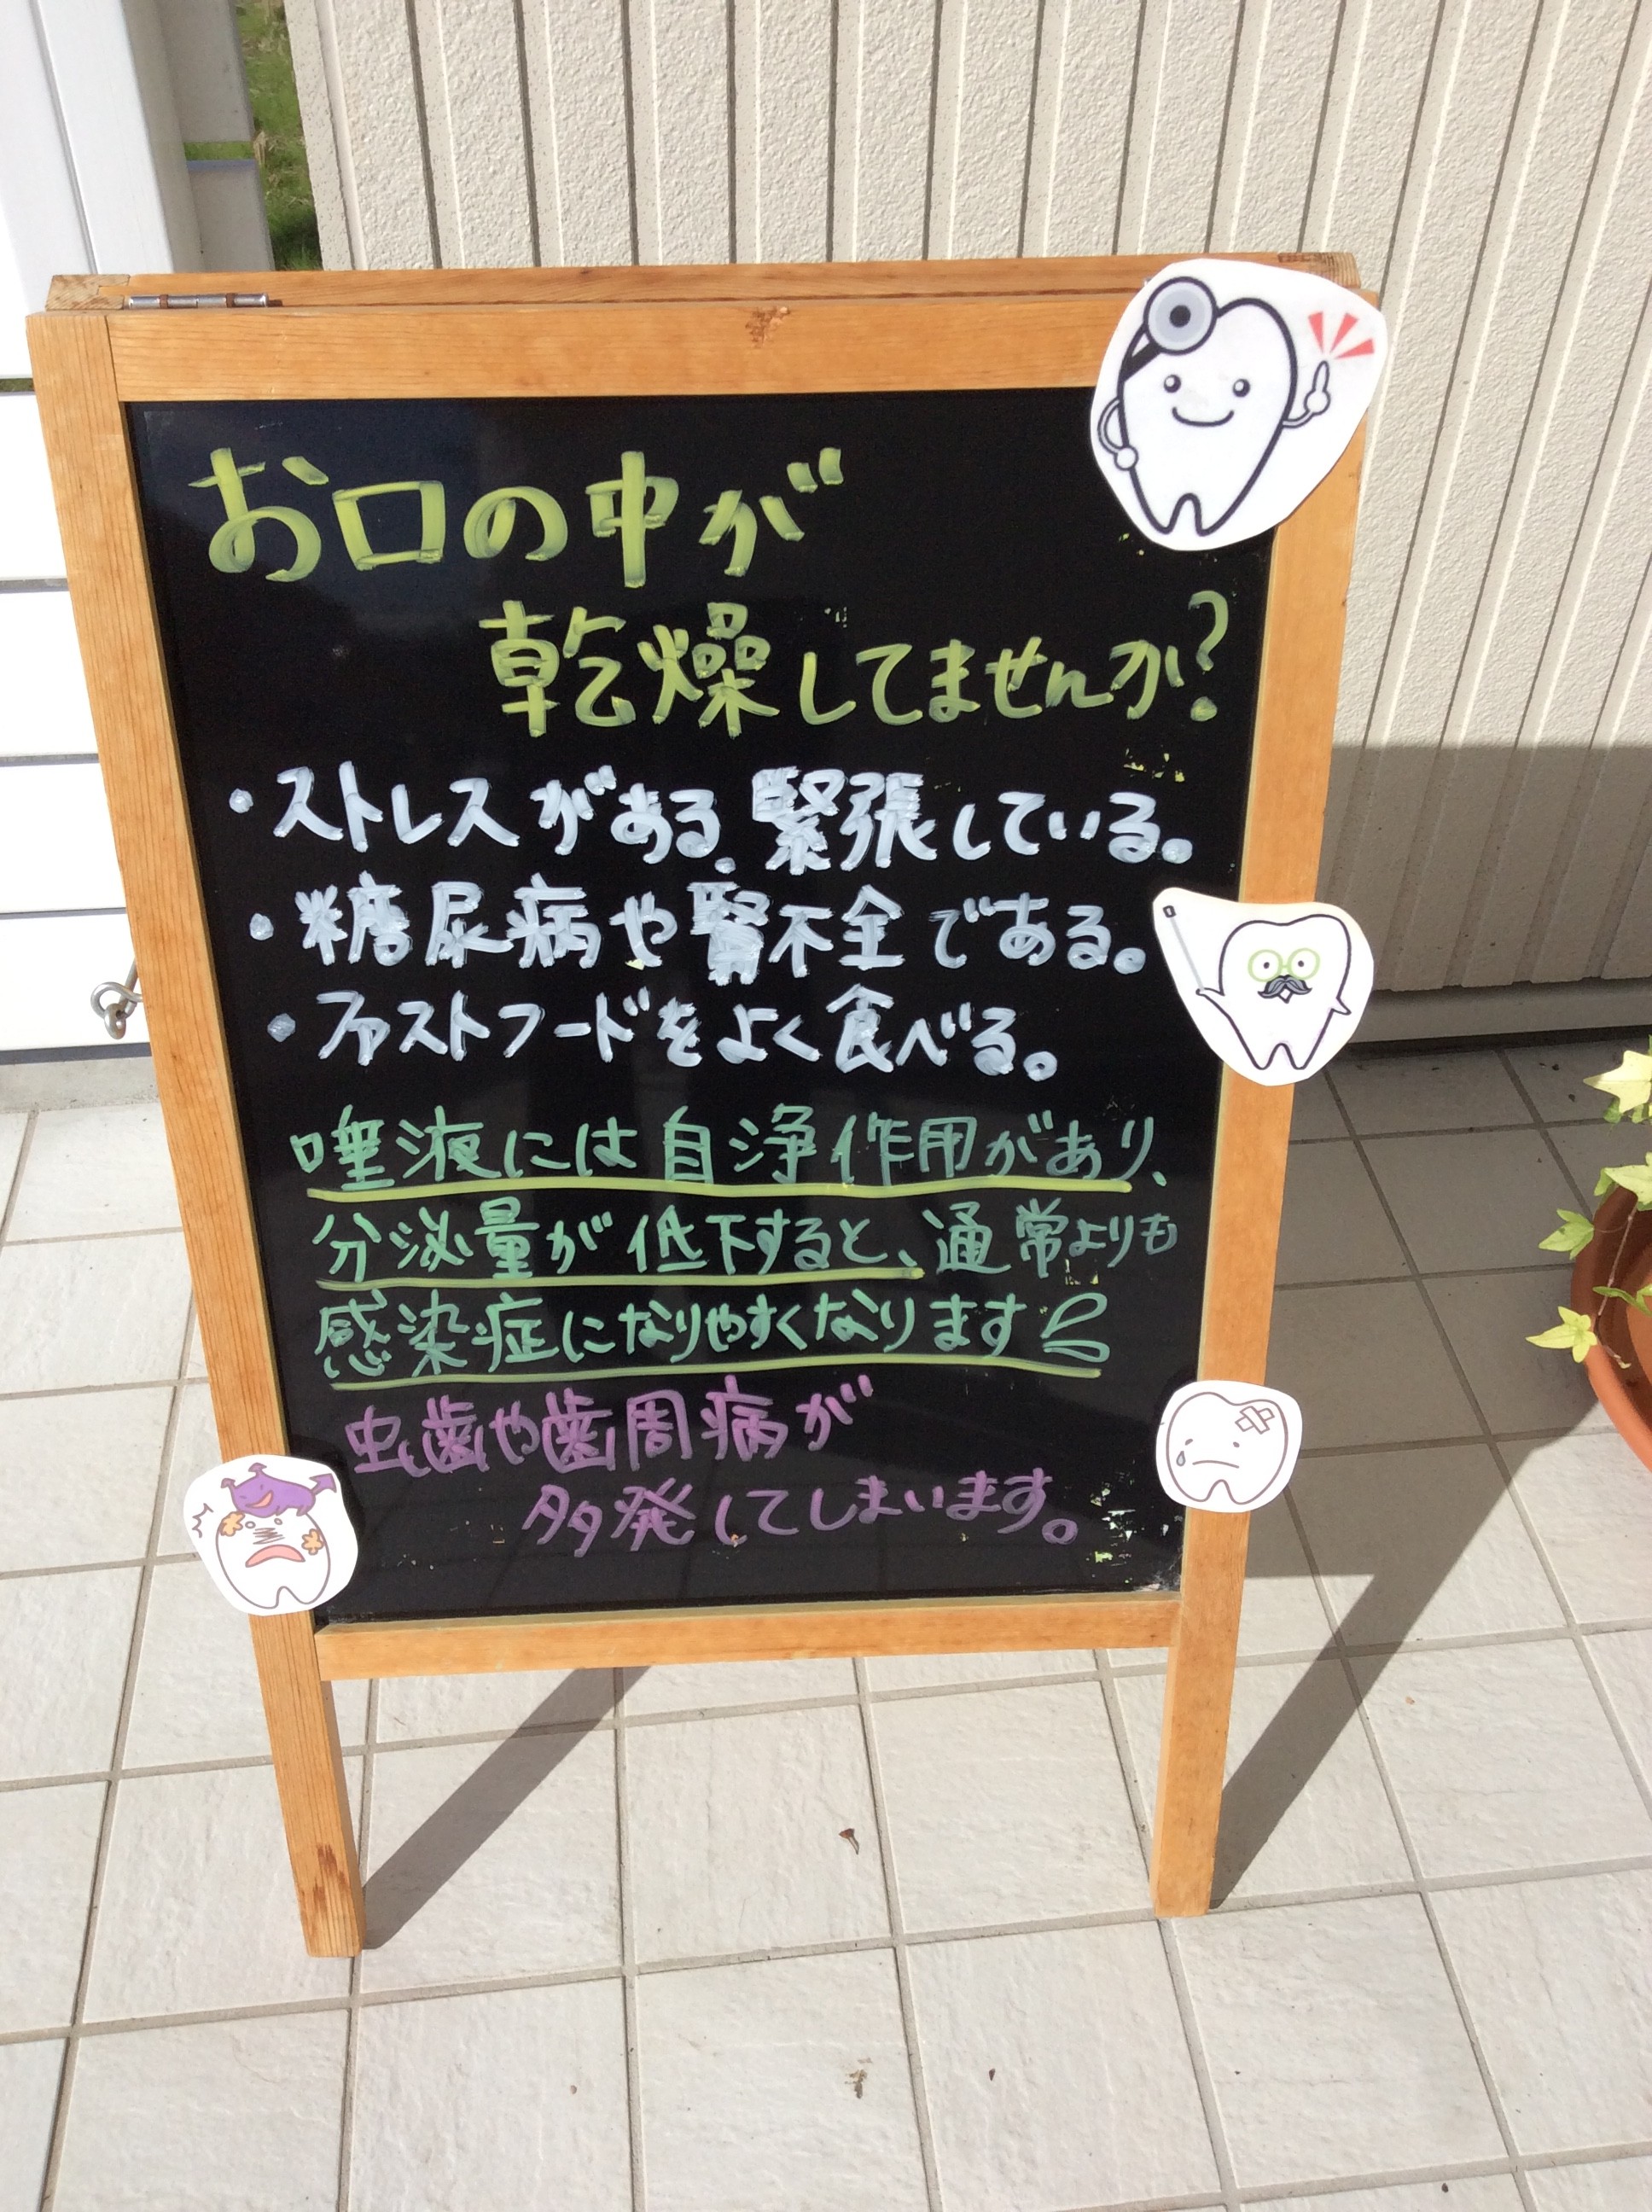 お口の中が
乾燥してませんか?
・ストレスがある、緊張している。
・糖尿病や腎不全である。
・ファストフードをよく食べる。
唾液には自浄作用があり、
分泌量が低下すると、通常よりも
感染症になりやすくなります
虫歯や歯周病が
多発してしまいます。